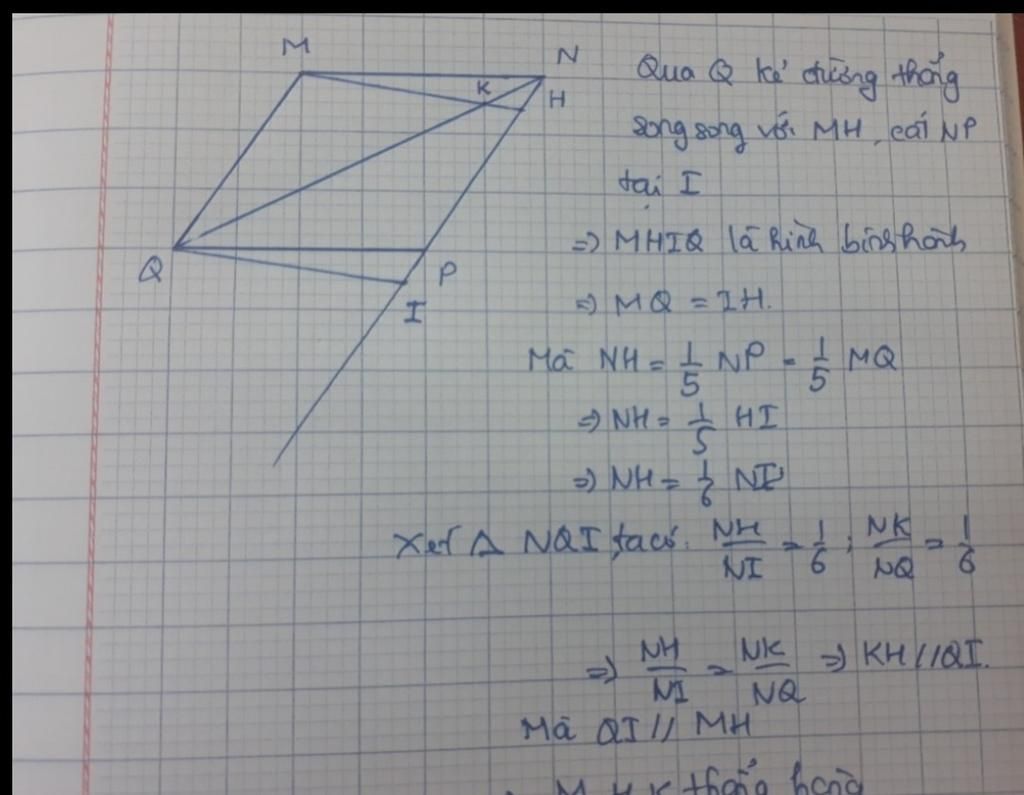 M
N
K
H
Q
P
I
Qua Q kẻ đường thẳng
song song với MH, cắt NP
tại I
=> MHIQ là hình bình hành
=> MQ = IH.
Mà NH = 1/5 NP = 1/5 MQ
=> NH = 1/5 HI
=> NH = 1/6 NI
Xét Δ NQI ta có: NH/NI = 1/6 ; NK/NQ = 1/6
=> NH/NI = NK/NQ => KH // QI.
Mà QI // MH
M, H, K thẳng hàng